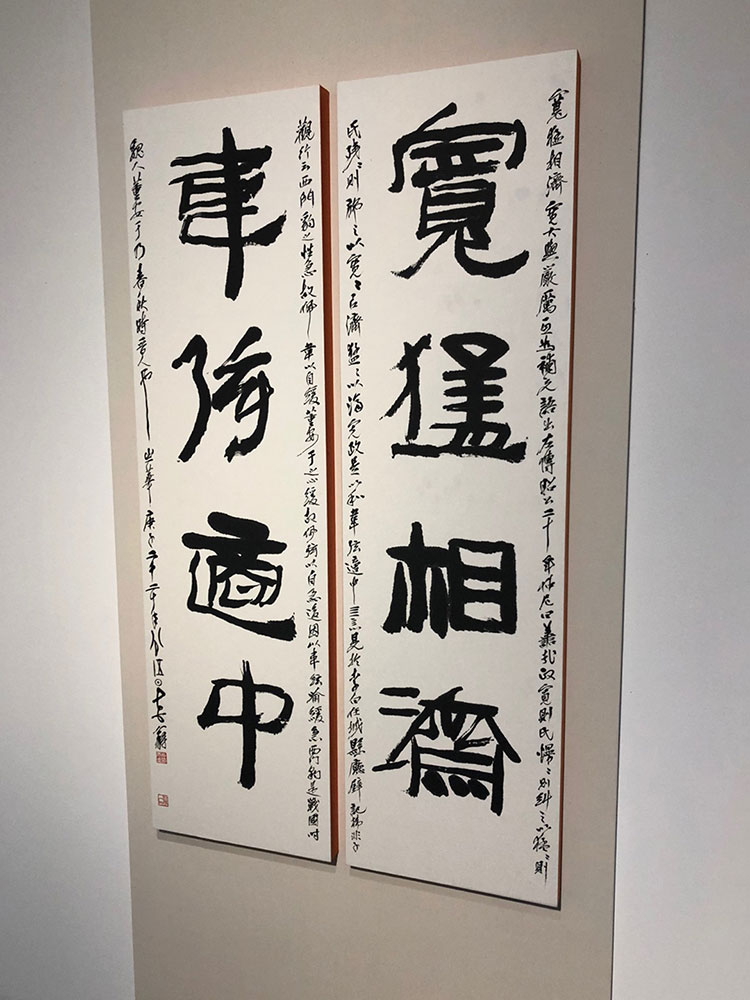 寬猛相濟寬大與嚴厲互為補充語出左傳昭公二十年仲尼曰善哉政寬則民慢〻則糾之以猛〻則
寬猛相濟
民殘〻則施之以寬〻以濟猛〻以濟寬政是以和韋弦適中見於李白任城縣廳壁記韓非子
觀行云西門豹之性急故佩韋以自緩董安于之心緩故佩弦以自急後因以韋弦喻緩急西門豹是戰國時
韋弦適中
魏人董安于乃春秋時晉人 庚子